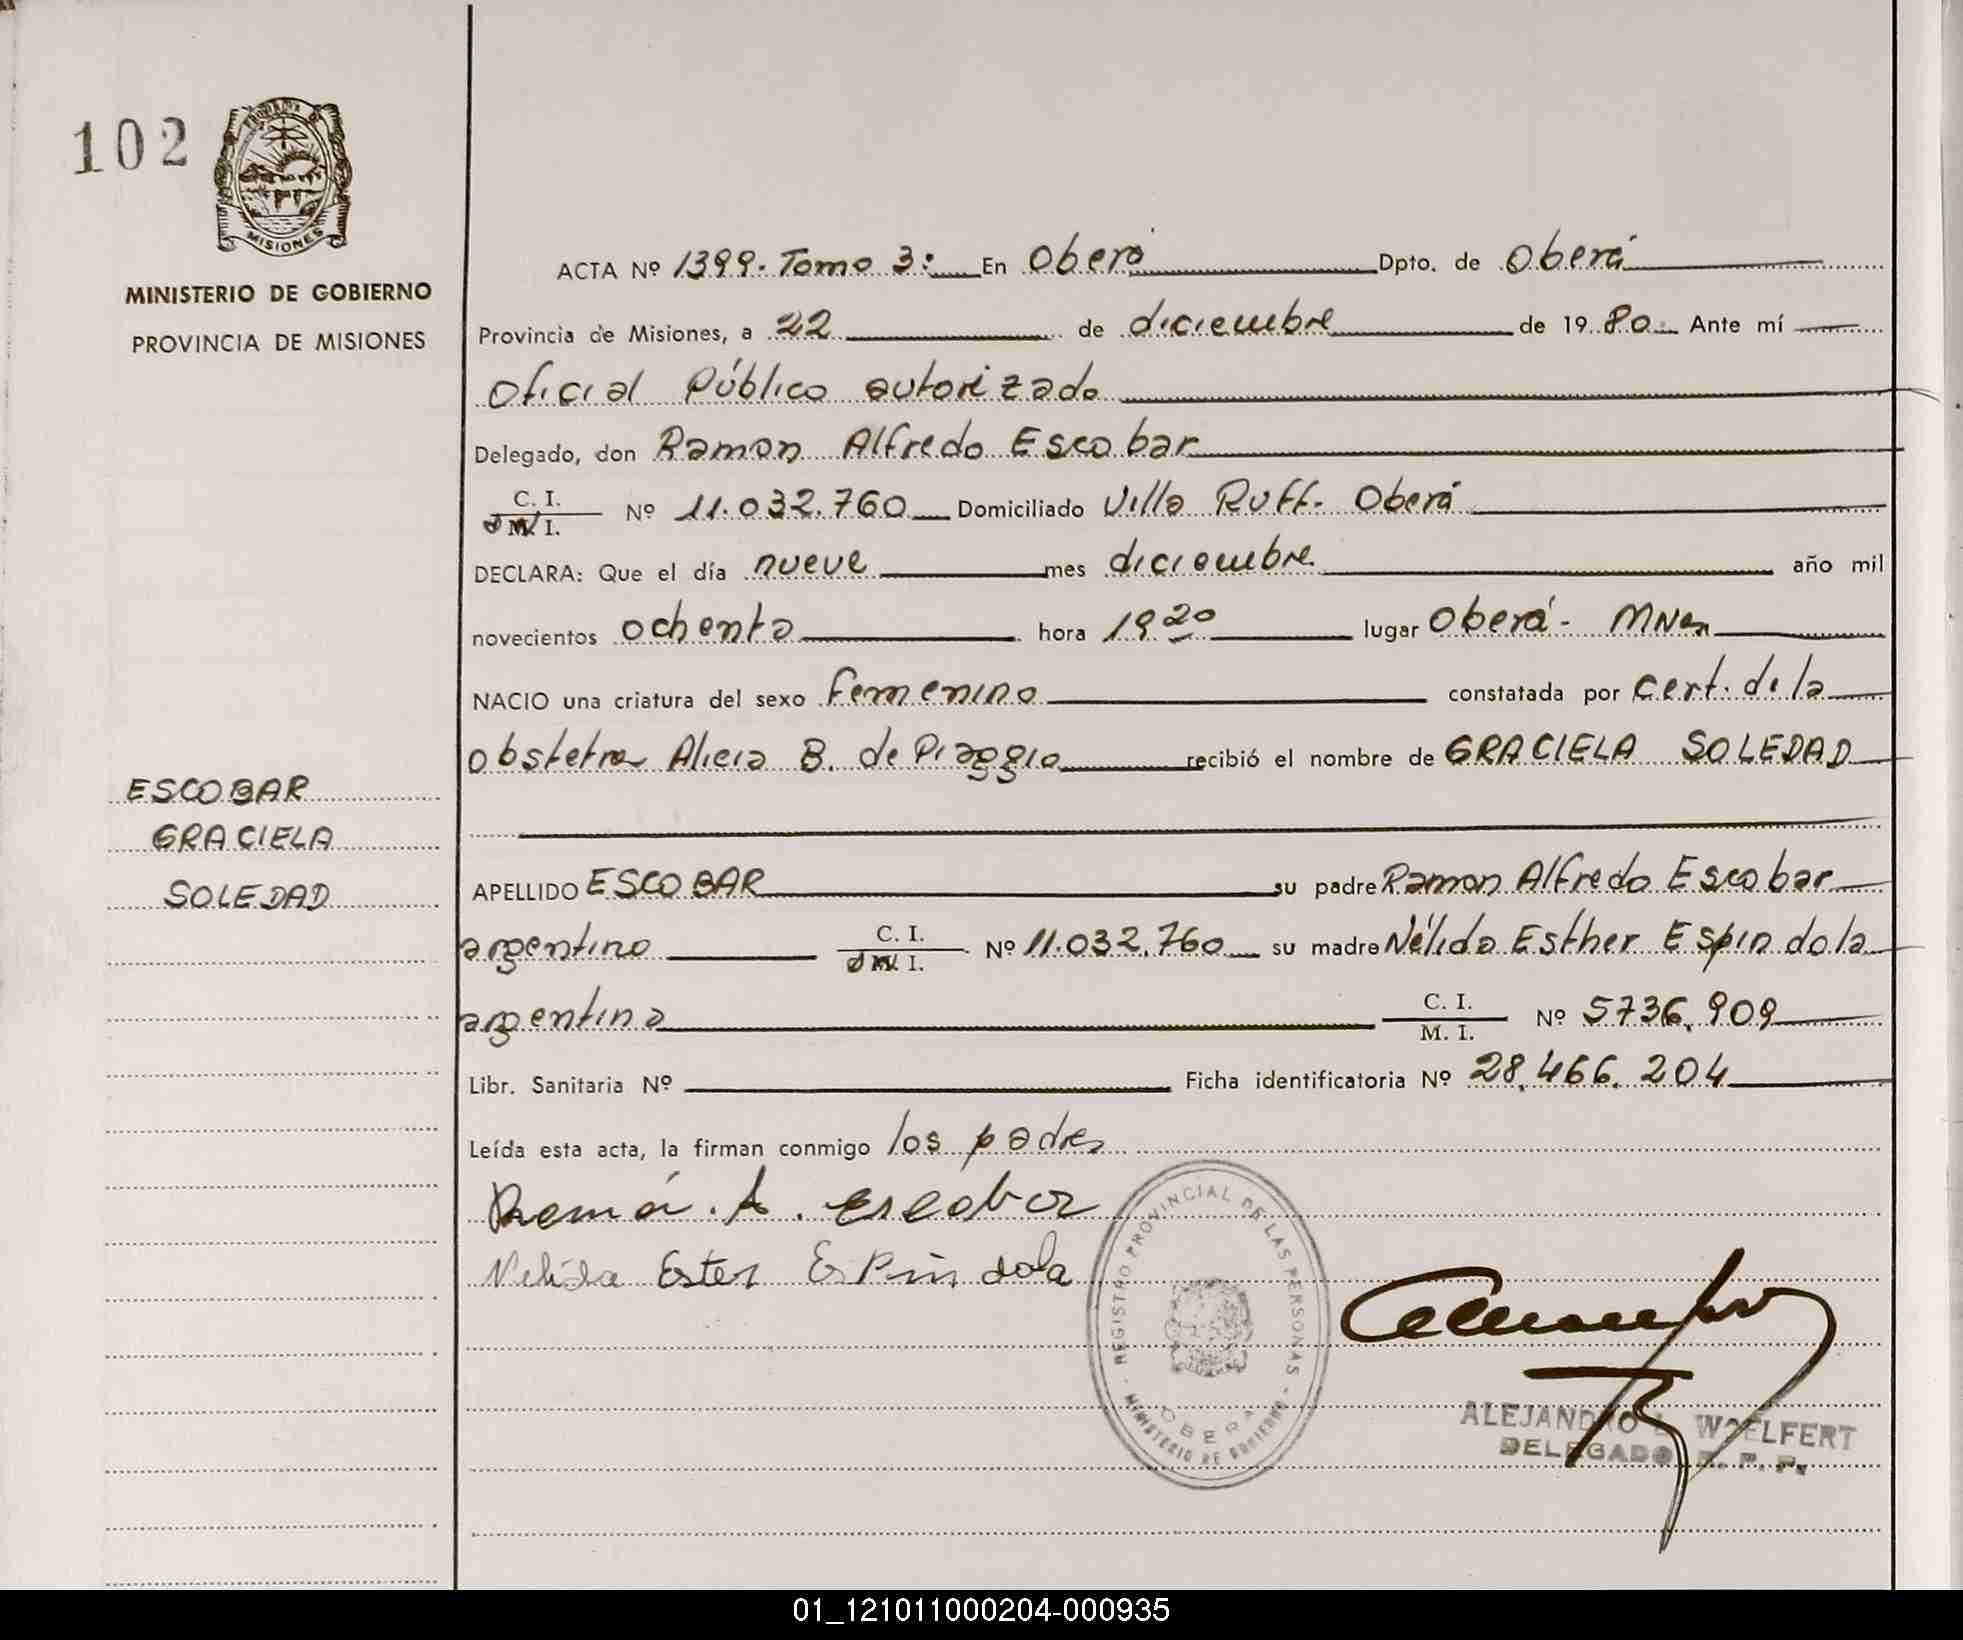 102
PROVINCIA DE
MISIONES
MINISTERIO DE GOBIERNO
PROVINCIA DE MISIONES
ACTA Nº 1399. Tomo 3: En Oberá Dpto. de Oberá
Provincia de Misiones, a 22 de diciembre de 19 80. Ante mí
Oficial Público autorizado
Delegado, don Ramon Alfredo Escobar
C. I.
M. I. Nº 11.032.760 Domiciliado Villa Ruff. Oberá
DECLARA: Que el día nueve mes diciembre año mil
novecientos ochenta hora 19 20 lugar Oberá - Mnes
NACIO una criatura del sexo femenino constatada por cert. de la
Obstetra Alicia B. de Piaggio recibió el nombre de GRACIELA SOLEDAD
ESCOBAR
GRACIELA
SOLEDAD
APELLIDO ESCOBAR su padre Ramon Alfredo Escobar
argentino C. I. M. I. Nº 11.032.760 su madre Nélida Esther Espindola
argentina C. I. M. I. Nº 5736.909
Libr. Sanitaria Nº Ficha identificatoria Nº 28.466.204
Leída esta acta, la firman conmigo los padres
Ramón. A. escobar
Nelida Ester Espindola
REGISTRO PROVINCIAL DE LAS PERSONAS
OBERA
MINISTERIO DE GOBIERNO
ALEJANDRO L. WOELFERT
DELEGADO R. P. P.
01_121011000204-000935